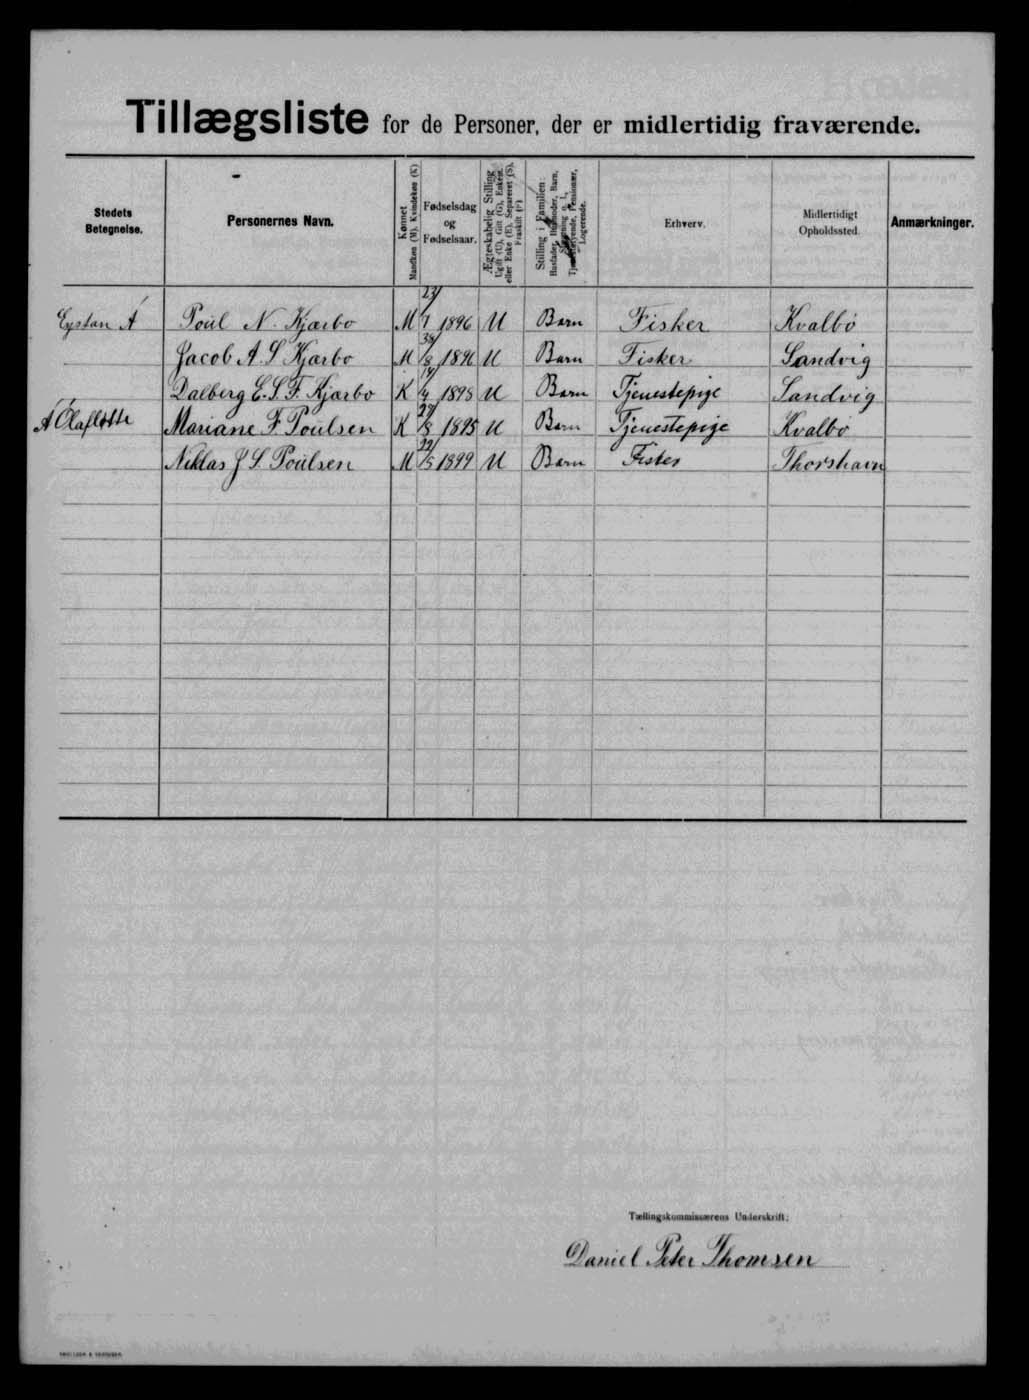 Tillægsliste for de Personer, der er midlertidig fraværende.
Stedets Betegnelse.
Personernes Navn.
Kønnet Mandkøn (M). Kvindekøn (K)
Fødselsdag og Fødselsaar.
Ægteskabelig Stilling Ugift (U), Gift (G), Enkem. eller Enke (E), Separeret (S), Fraskilt (F)
Stilling i Familien: Husfader, Husmoder, Barn, Tjenestetyende, Pensionær, Logerende.
Erhverv.
Midlertidigt Opholdssted.
Anmærkninger.
Eystan Á Poul N. Kjærbo M 23/7 1896 U Barn Fisker Kvalbø
Jacob A. S Kjærbo M 1896 U Barn Fisker Sandvig
Dalberg E. S. F. Kjærbo K U Barn Tjenestepige Sandvig
Mariane F Poulsen K 1895 U Barn Tjenestepige Kvalbø
Niklas J S. Poulsen M 22/5 1899 U Barn Fisker Thorshavn
Tællingskommissærens Underskrift:
Daniel Peter Thomsen